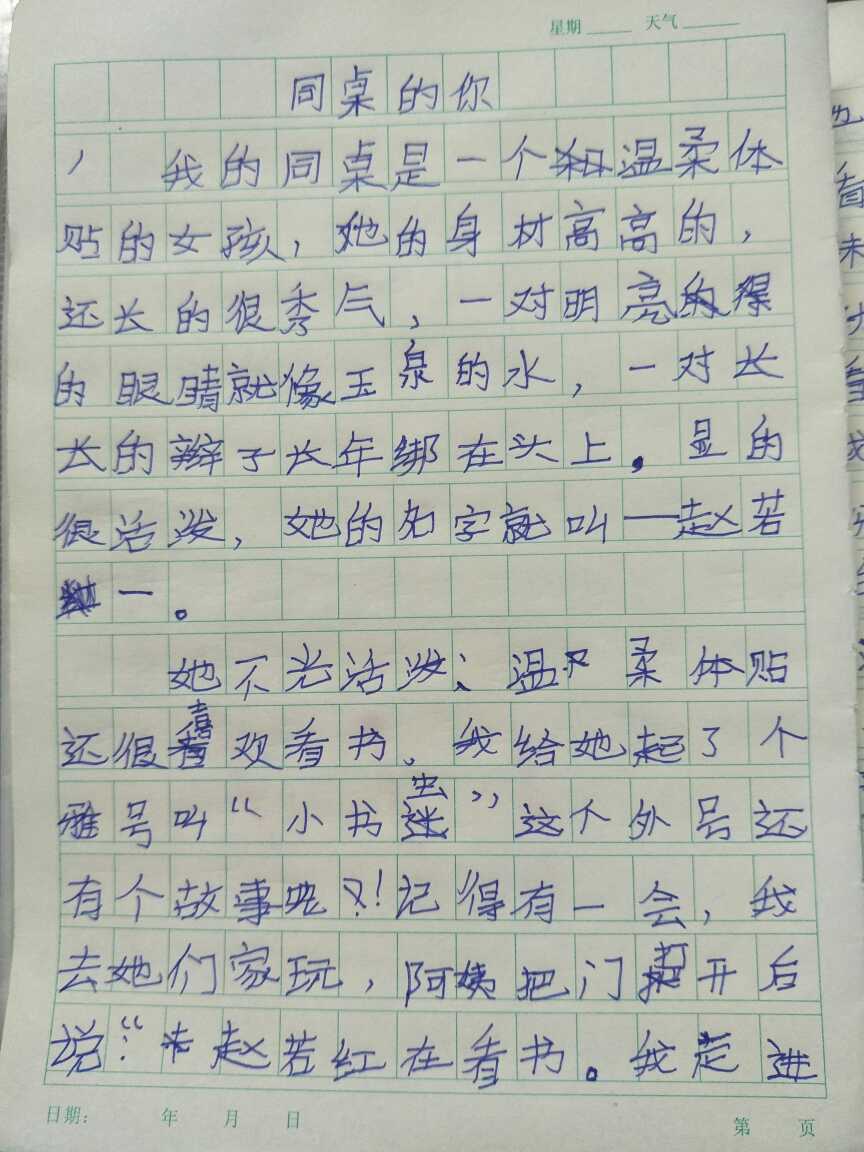 星期 天气
同桌的你
我的同桌是一个温柔体
贴的女孩，她的身材高高的，
还长的很秀气，一对明亮
的眼睛就像玉泉的水，一对长
长的辫子长年绑在头上。显的
很活泼，她的名字就叫一赵若
一。
她不光活泼、温柔体贴
还很喜欢看书。我给她起了个
雅号叫“小书虫”这个外号还
有个故事呢？！记得有一会，我
去她们家玩，阿姨把门打开后
说：“赵若红在看书。我走进
日期： 年 月 日 第 页